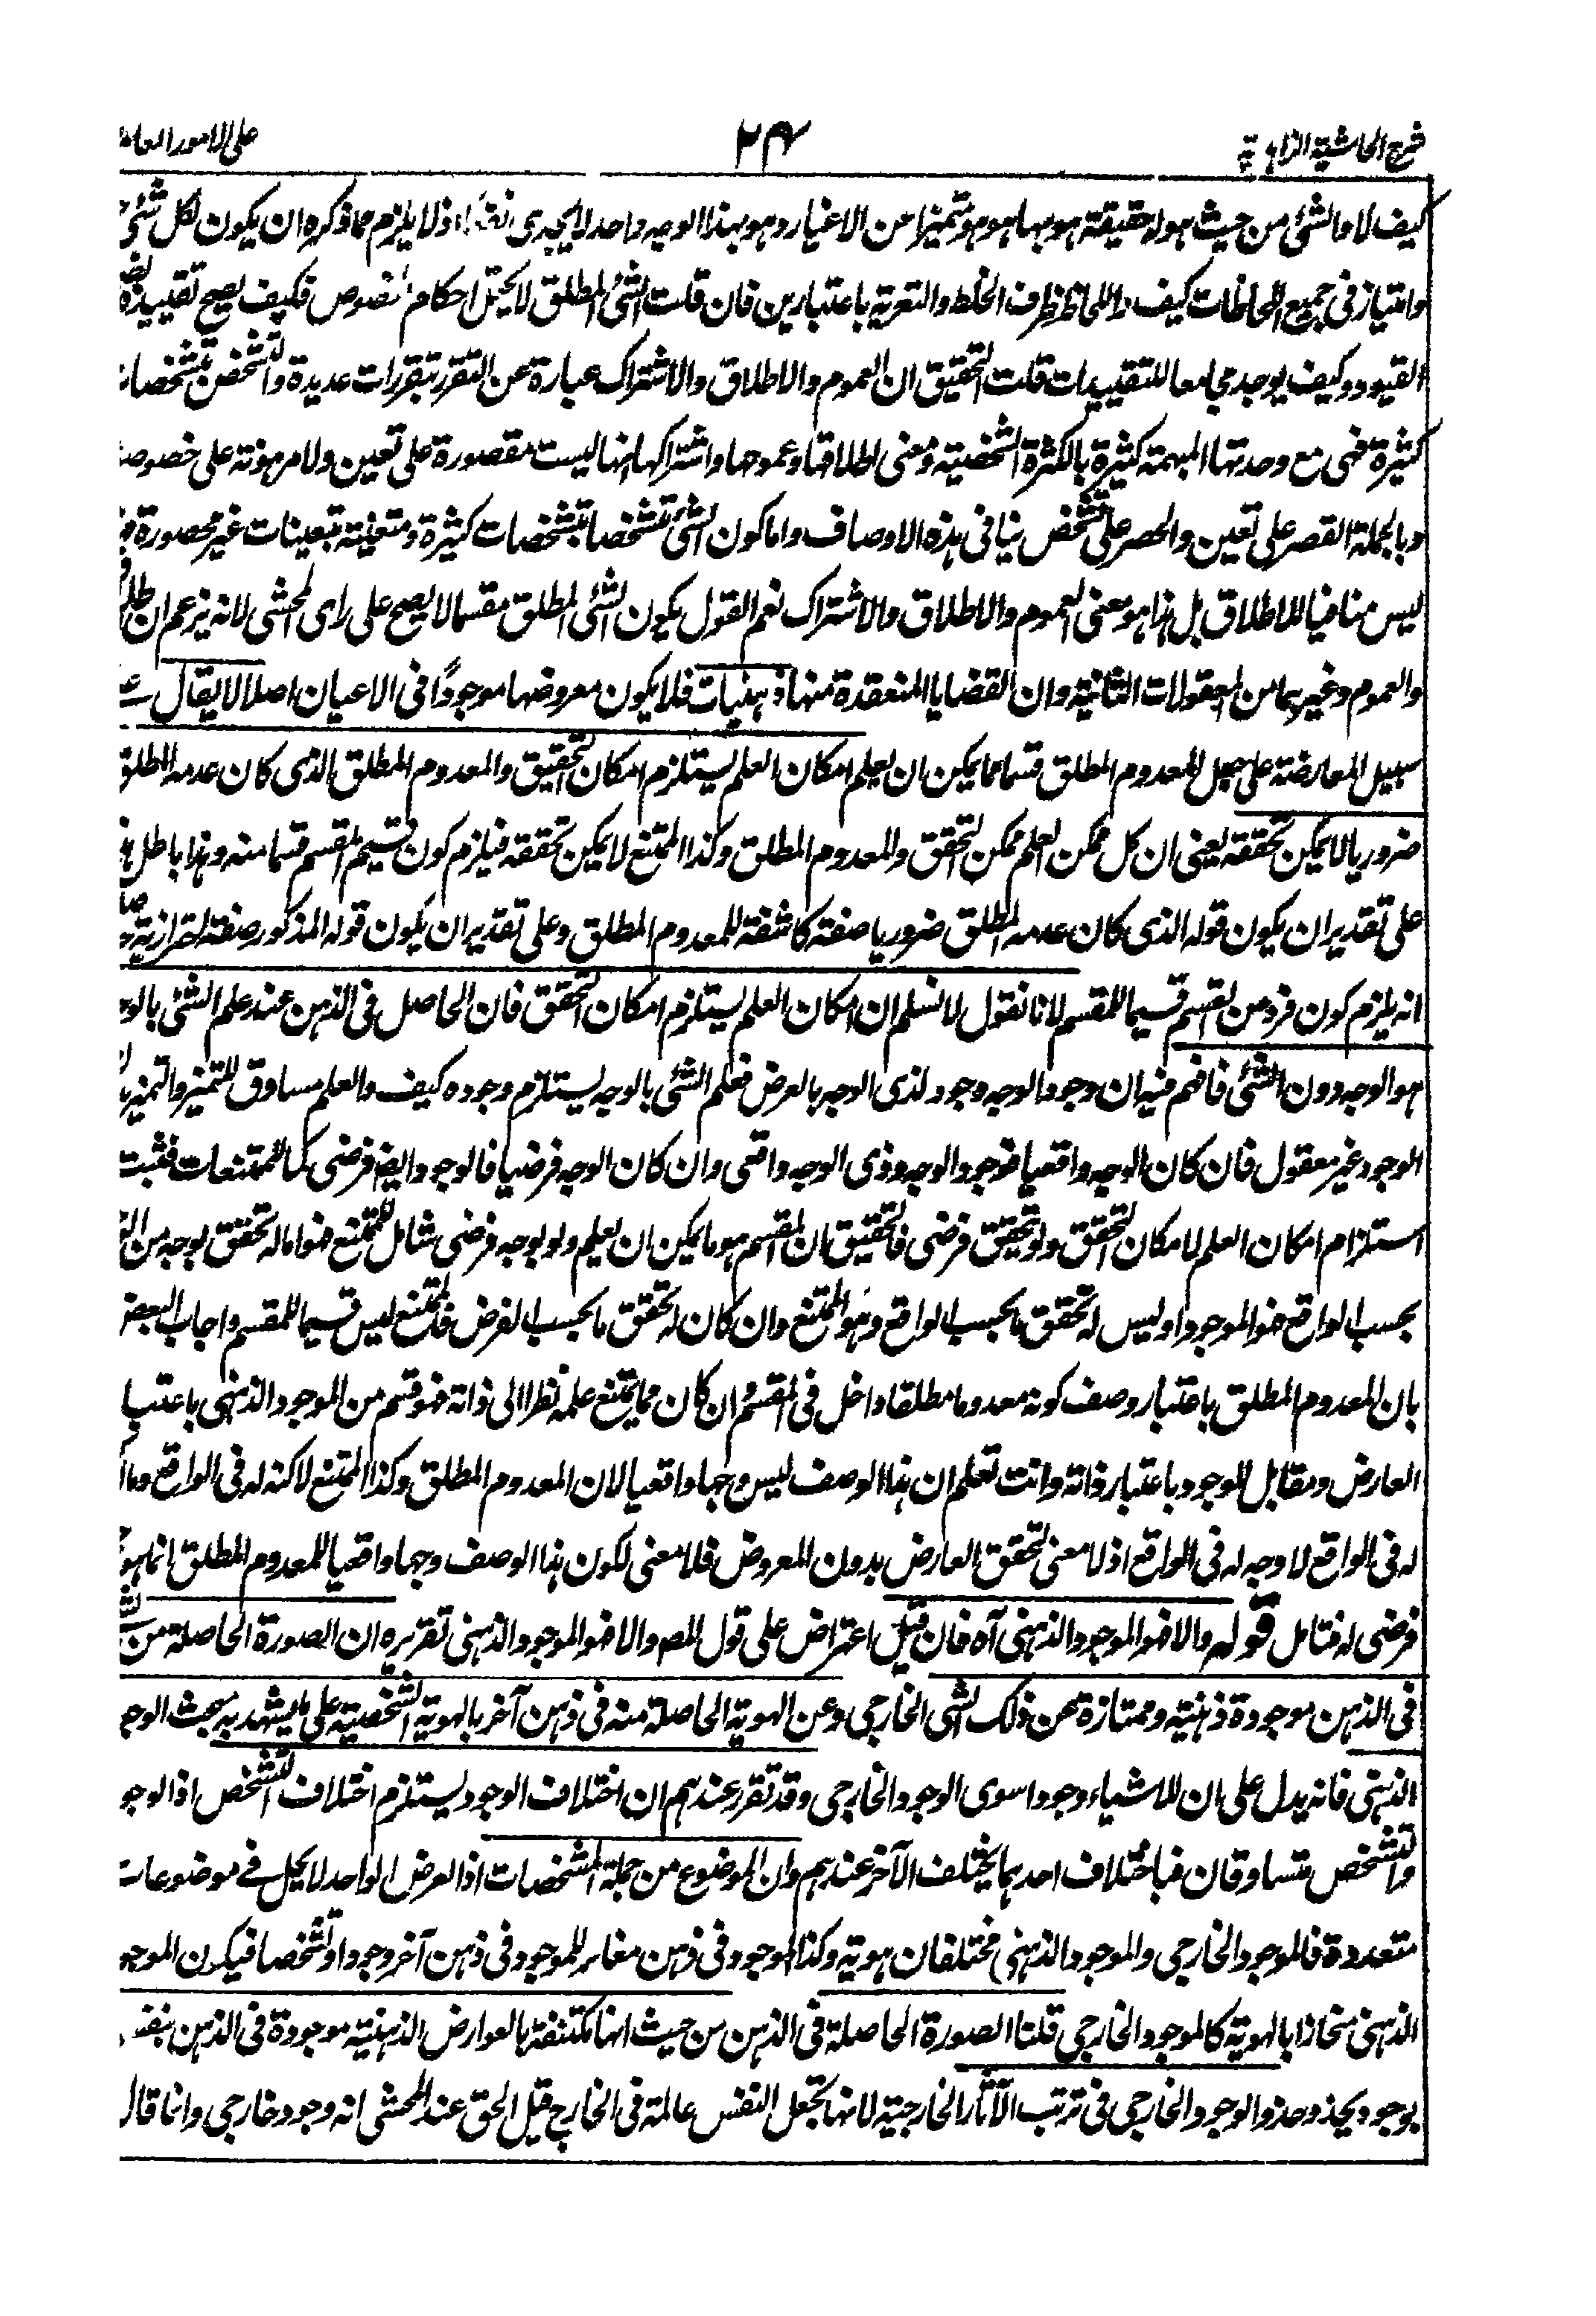 شرح الحاشية الزاهدية ٢٤ على الامور العا
كيف لا والشئ من حيث هو له حقيقة هو بها هو هو متميزا عن الاغيار وهو بهذا الوجه واحد لا يجدى نفعا اذ لا يلزم مما ذكره ان يكون لكل شئ
وامتياز فى جميع اللحاظات كيف واللحاظ ظرف الخلط والتعرية باعتبارين فان قلت الشئ المطلق لا يحتمل احكام الخصوص فكيف يصح تقييده
القيود وكيف يوجد مجامعا للتقييدات قلت التحقيق ان العموم والاطلاق والاشتراك عبارة عن التقرر بتقررات عديدة والتشخص بتشخصات
كثيرة فهى مع وحدتها المبهمة كثيرة بالكثرة الشخصية ومعنى اطلاقها وعمومها واشتراكها انها ليست مقصورة على تعين ولا مرهونة على خصوصـ
وبالجملة القصر على تعين والحصر على تشخص ينافى هذه الاوصاف واما كون الشئ متشخصا بتشخصات كثيرة ومتعينة بتعينات غير محصورة
ليس منافيا للاطلاق بل هذا هو معنى العموم والاطلاق والاشتراك نعم القول بكون الشئ المطلق مقسما لا يصح على راى المحشى لانه يزعم ان
والعموم وغيرهما من المعقولات الثانية وان القضايا المنعقدة منها ذهنيات فلا يكون معروضها موجودًا فى الاعيان اصلا لا يقال
سبيل المعارضة على جعل المعدوم المطلق قسما مما يمكن ان يعلم امكان العلم يستلزم امكان التحقيق والمعدوم المطلق الذى كان عدمه المطلق
ضروريا لا يمكن تحققه يعنى ان كل ممكن العلم ممكن التحقق والمعدوم المطلق وكذا الممتنع لا يمكن تحققه فيلزم كون قسيم المقسم قسما منه وهذا باطل
على تقدير ان يكون قوله الذى كان عدمه المطلق ضروريا صفة كاشفة للمعدوم المطلق وعلى تقدير ان يكون قوله المذكور صفة احترازية
انه يلزم كون فرد من القسم قسيما للمقسم لانا نقول لا نسلم ان امكان العلم يستلزم امكان التحقق فان الحاصل فى الذهن عند علم الشئ بالوجـ
هو الوجه دون الشئ فافهم فيه ان وجود الوجه وجود لذى الوجه بالعرض فعلم الشئ بالوجه يستلزم وجوده كيف والعلم مساوق للتميز والتميز
الوجود غير معقول فان كان الوجه واقعيا فوجود الوجه وذى الوجه واقعى وان كان الوجه فرضيا فالوجود ايضا فرضى كالممتنعات فثبت
استلزام امكان العلم لامكان التحقق ولو تحقق فرضى فالتحقيق ان المقسم هو ما يمكن ان يعلم ولو بوجه فرضى شامل للممتنع فهو اما له تحقق بوجه من
بحسب الواقع فهو الموجود او ليس له تحقق ما بحسب الواقع وهو الممتنع وان كان له تحقق ما بحسب الفرض فالممتنع ليس قسيما للمقسم واجاب البعض
بان المعدوم المطلق باعتبار وصف كونه معدوما مطلقا داخل فى المقسم وان كان مما يمتنع علمه نظرا الى ذاته فهو قسم من الموجود الذهنى باعتبا
العارض ومقابل للموجود باعتبار ذاته وانت تعلم ان هذا الوصف ليس وجها واقعيا لان المعدوم المطلق وكذا الممتنع لا كنه له فى الواقع وما
له فى الواقع لا وجه له فى الواقع اذ لا معنى لتحقق العارض بدون المعروض فلا معنى لكون هذا الوصف وجها واقعيا للمعدوم المطلق انما هو
فرضى له فتامل قوله والا فهو الموجود الذهنى آه فان قيل اعتراض على قول المص والا فهو الموجود الذهنى تقريره ان الصورة الحاصلة من
فى الذهن موجودة ذهنية وممتازة عن ذلك الشئ الخارجى وعن الهوية الحاصلة منه فى ذهن آخر بالهوية الشخصية على ما يشهد به بحث الوجـ
الذهنى فانه يدل على ان للاشياء وجودا سوى الوجود الخارجى وقد تقرر عندهم ان اختلاف الوجود يستلزم اختلاف التشخص اذ الوجو
والتشخص متساوقان فباختلاف احدهما يختلف الآخر عندهم وان الموضوع من جملة المشخصات اذ العرض الواحد لا يحل فى موضوعات
متعددة فالموجود الخارجى والموجود الذهنى مختلفان هوية وكذا الموجود فى ذهن مغاير للموجود فى ذهن آخر وجودا وتشخصا فيكون الموجو
الذهنى منحازا بالهوية كالموجود الخارجى قلنا الصورة الحاصلة فى الذهن من حيث انها مكتنفة بالعوارض الذهنية موجودة فى الذهن بنفسـ
بوجود يحذو حذو الوجود الخارجى فى ترتب الآثار الخارجية لانها تجعل النفس عالمة فى الخارج قيل الحق عند المحشى انه وجود خارجى وانما قال